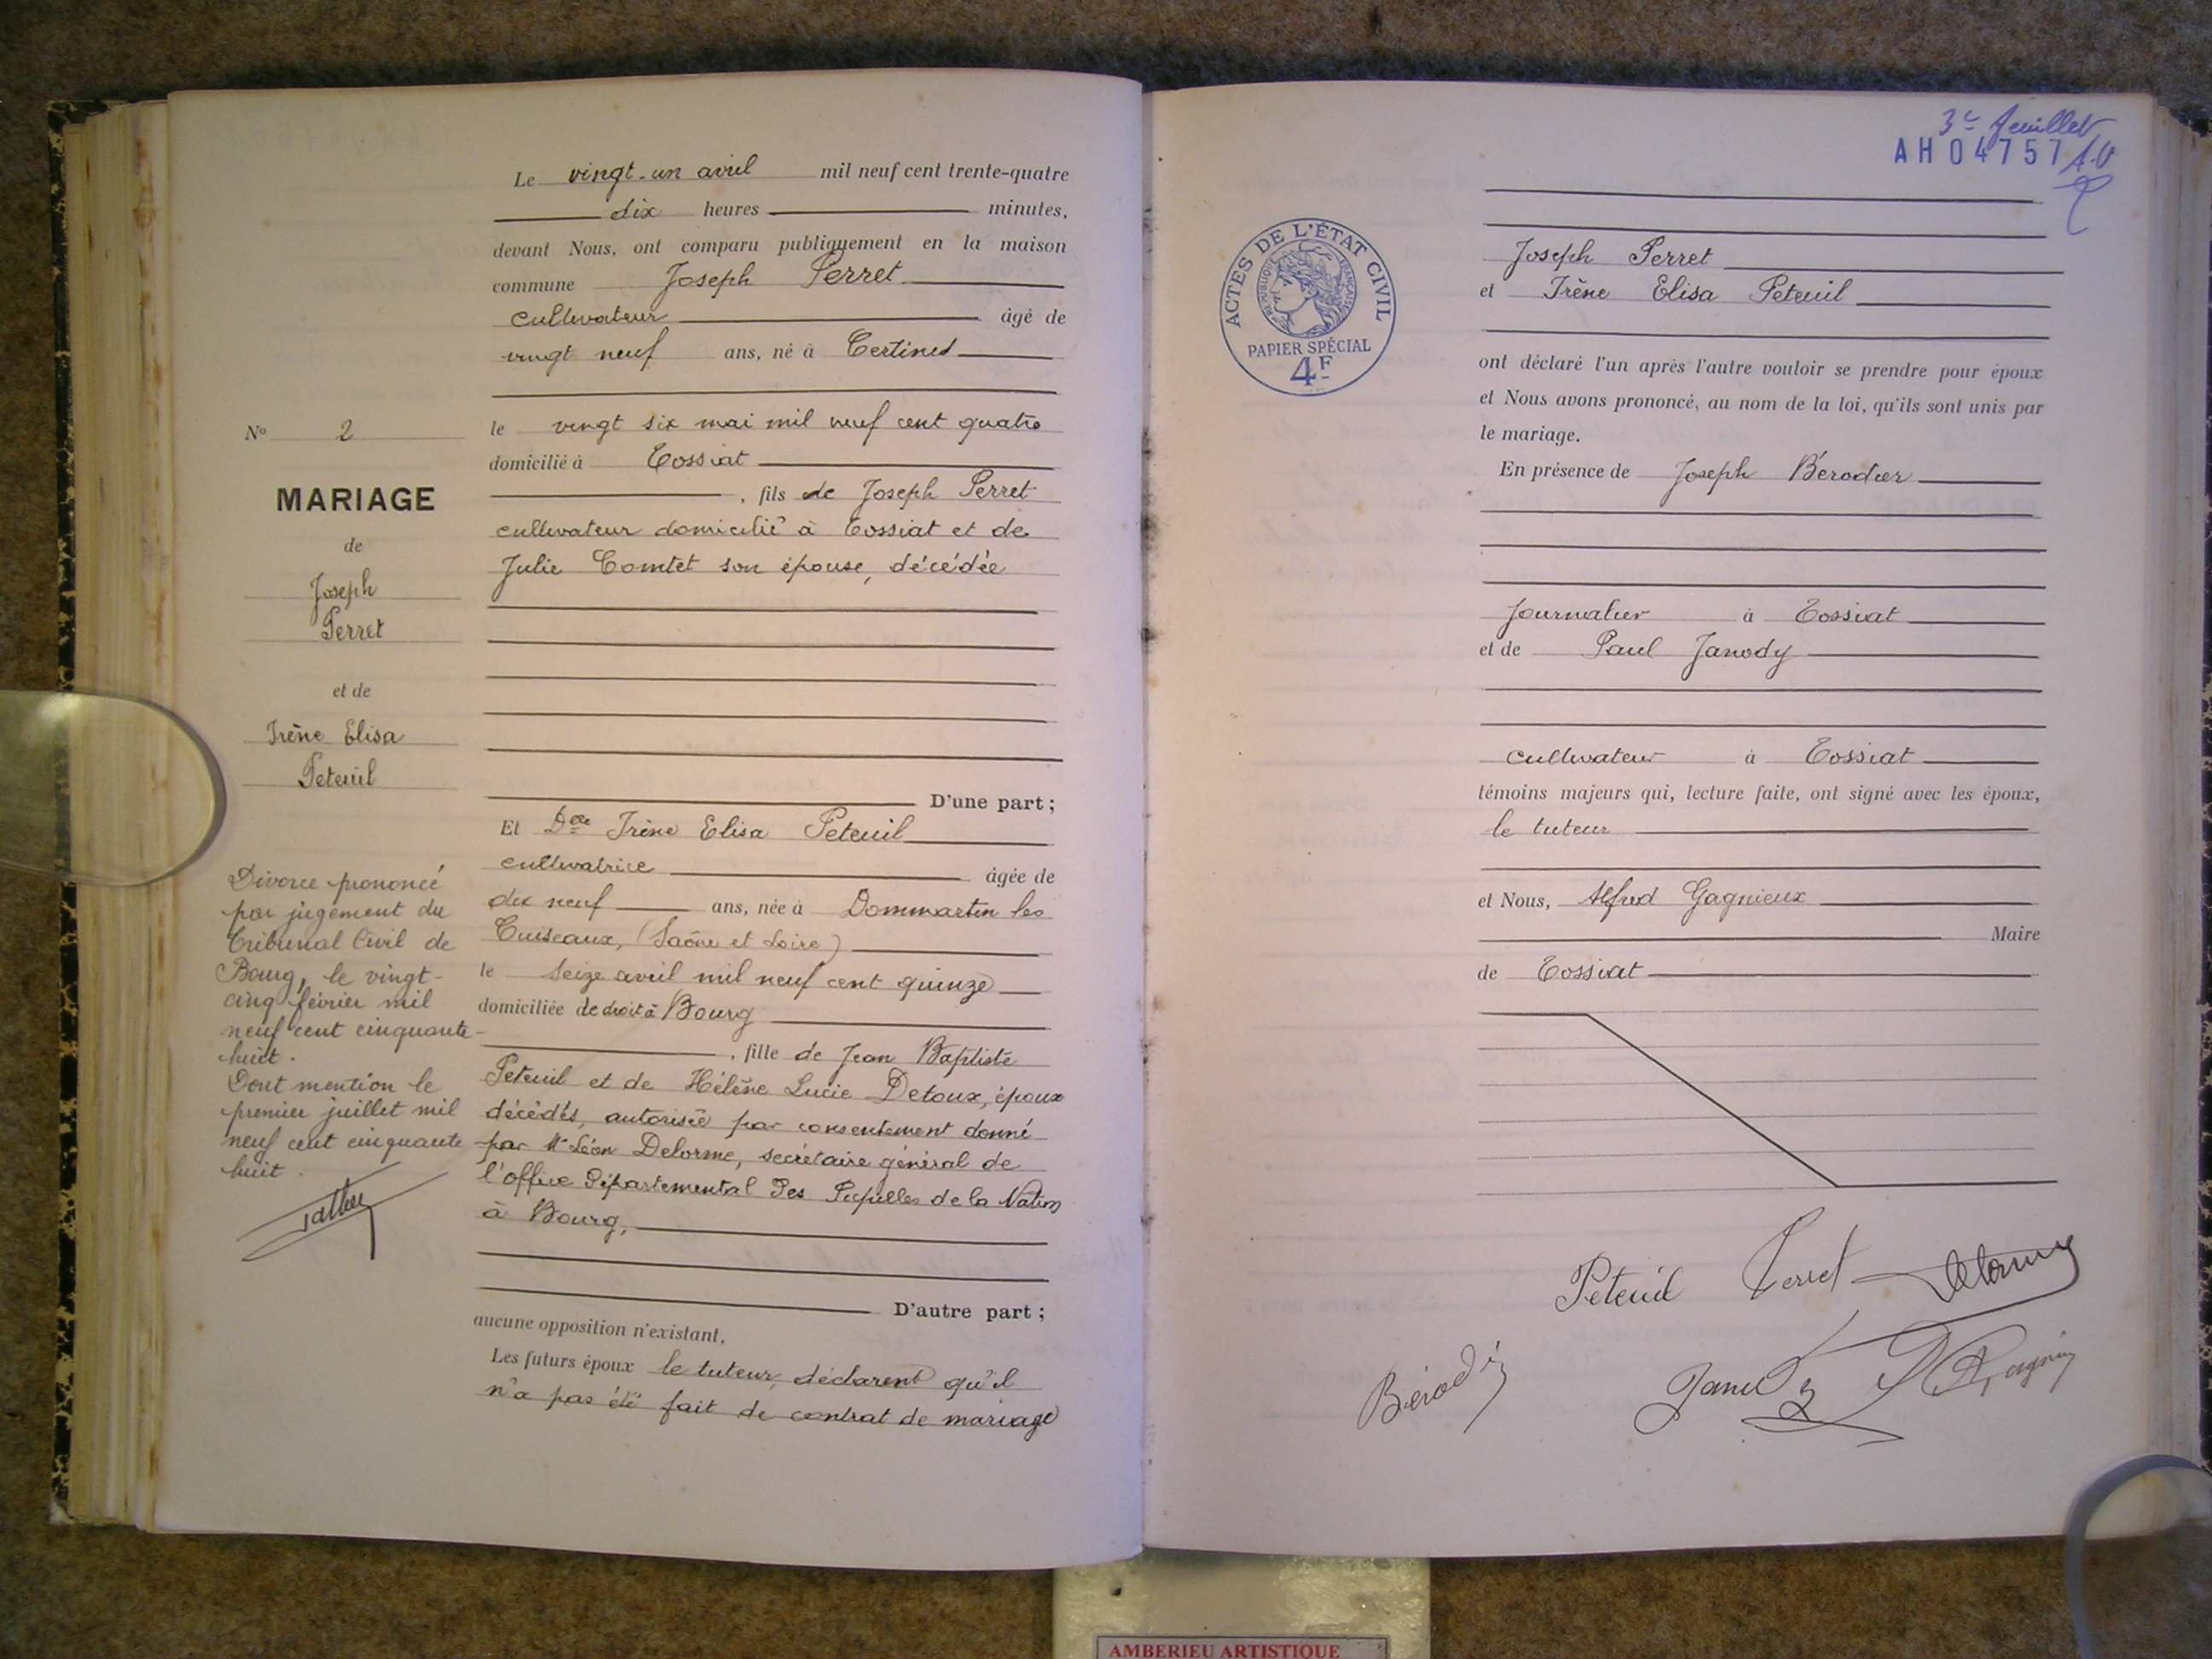 Le vingt-un avril mil neuf cent trente-quatre
dix heures minutes,
devant Nous, ont comparu publiquement en la maison
commune Joseph Perret
cultivateur âgé de
vingt neuf ans, né à Certines
le vingt six mai mil neuf cent quatre
domicilié à Tossiat
, fils de Joseph Perret
cultivateur domicilié à Tossiat et de
Julie Comtet son épouse, décédée
D'une part ;
Et Delle Irène Elisa Peteuil
cultivatrice âgée de
dix neuf ans, née à Dommartin les
Cuiseaux, (Saône et Loire)
le seize avril mil neuf cent quinze
domiciliée de droit à Bourg
, fille de Jean Baptiste
Peteuil et de Hélène Lucie Detoux, époux
décédés, autorisée par consentement donné
par Mr Léon Delorme, secrétaire général de
l'office Départemental des Pupilles de la Nation
à Bourg,
D'autre part ;
aucune opposition n'existant.
Les futurs époux le tuteur, déclarent qu'il
n'a pas été fait de contrat de mariage
No 2
MARIAGE
de
Joseph
Perret
et de
Irène Elisa
Peteuil
Divorce prononcé
par jugement du
Tribunal Civil de
Bourg, le vingt-
cinq février mil
neuf cent cinquante-
huit.
Dont mention le
premier juillet mil
neuf cent cinquante
huit.
3e feuillet
AH04757
ACTES DE L'ÉTAT CIVIL
RÉPUBLIQUE FRANÇAISE
PAPIER SPÉCIAL
4F
Joseph Perret
et Irène Elisa Peteuil
ont déclaré l'un après l'autre vouloir se prendre pour époux
et Nous avons prononcé, au nom de la loi, qu'ils sont unis par
le mariage.
En présence de Joseph Bérodier
Journalier à Tossiat
et de Paul Janody
cultivateur à Tossiat
témoins majeurs qui, lecture faite, ont signé avec les époux,
le tuteur
et Nous, Alfred Gagnieux
Maire
de Tossiat
Peteuil Perret Delorme
Bérodier Janody
AMBERIEU ARTISTIQUE